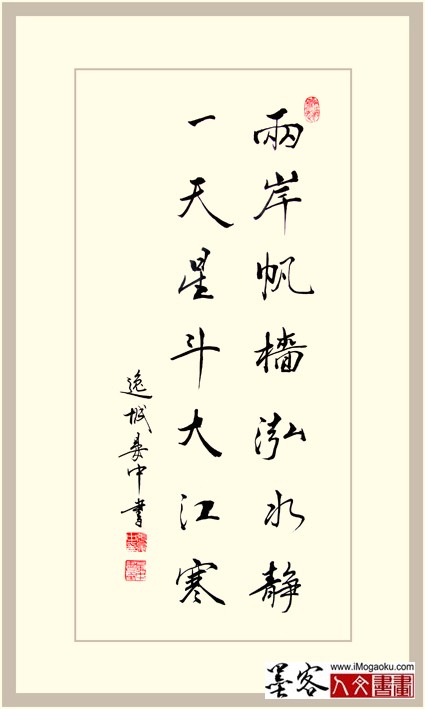 兩岸帆檣泓水靜
一天星斗大江寒
逸城中書
墨客
www.iMogaoku.com
人文書畫